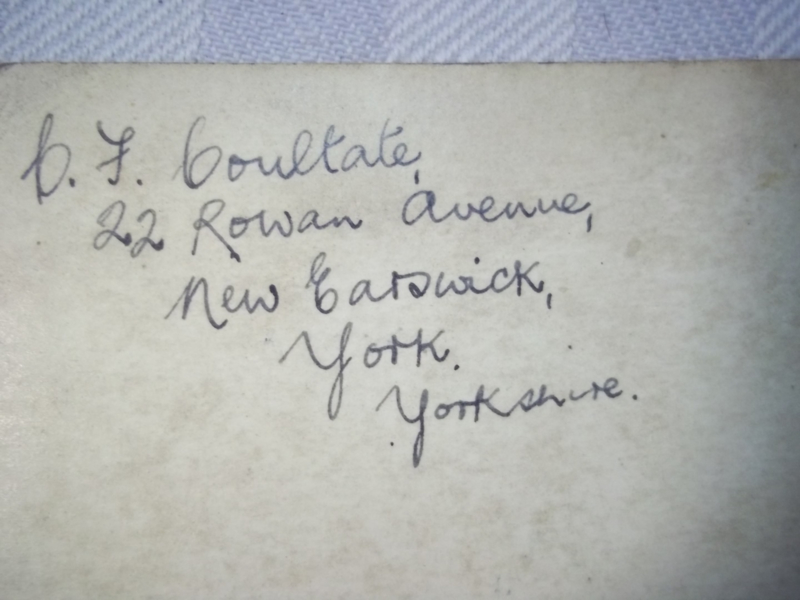 C. F. Coultate,
22 Rowan Avenue,
New Earswick,
York.
Yorkshire.